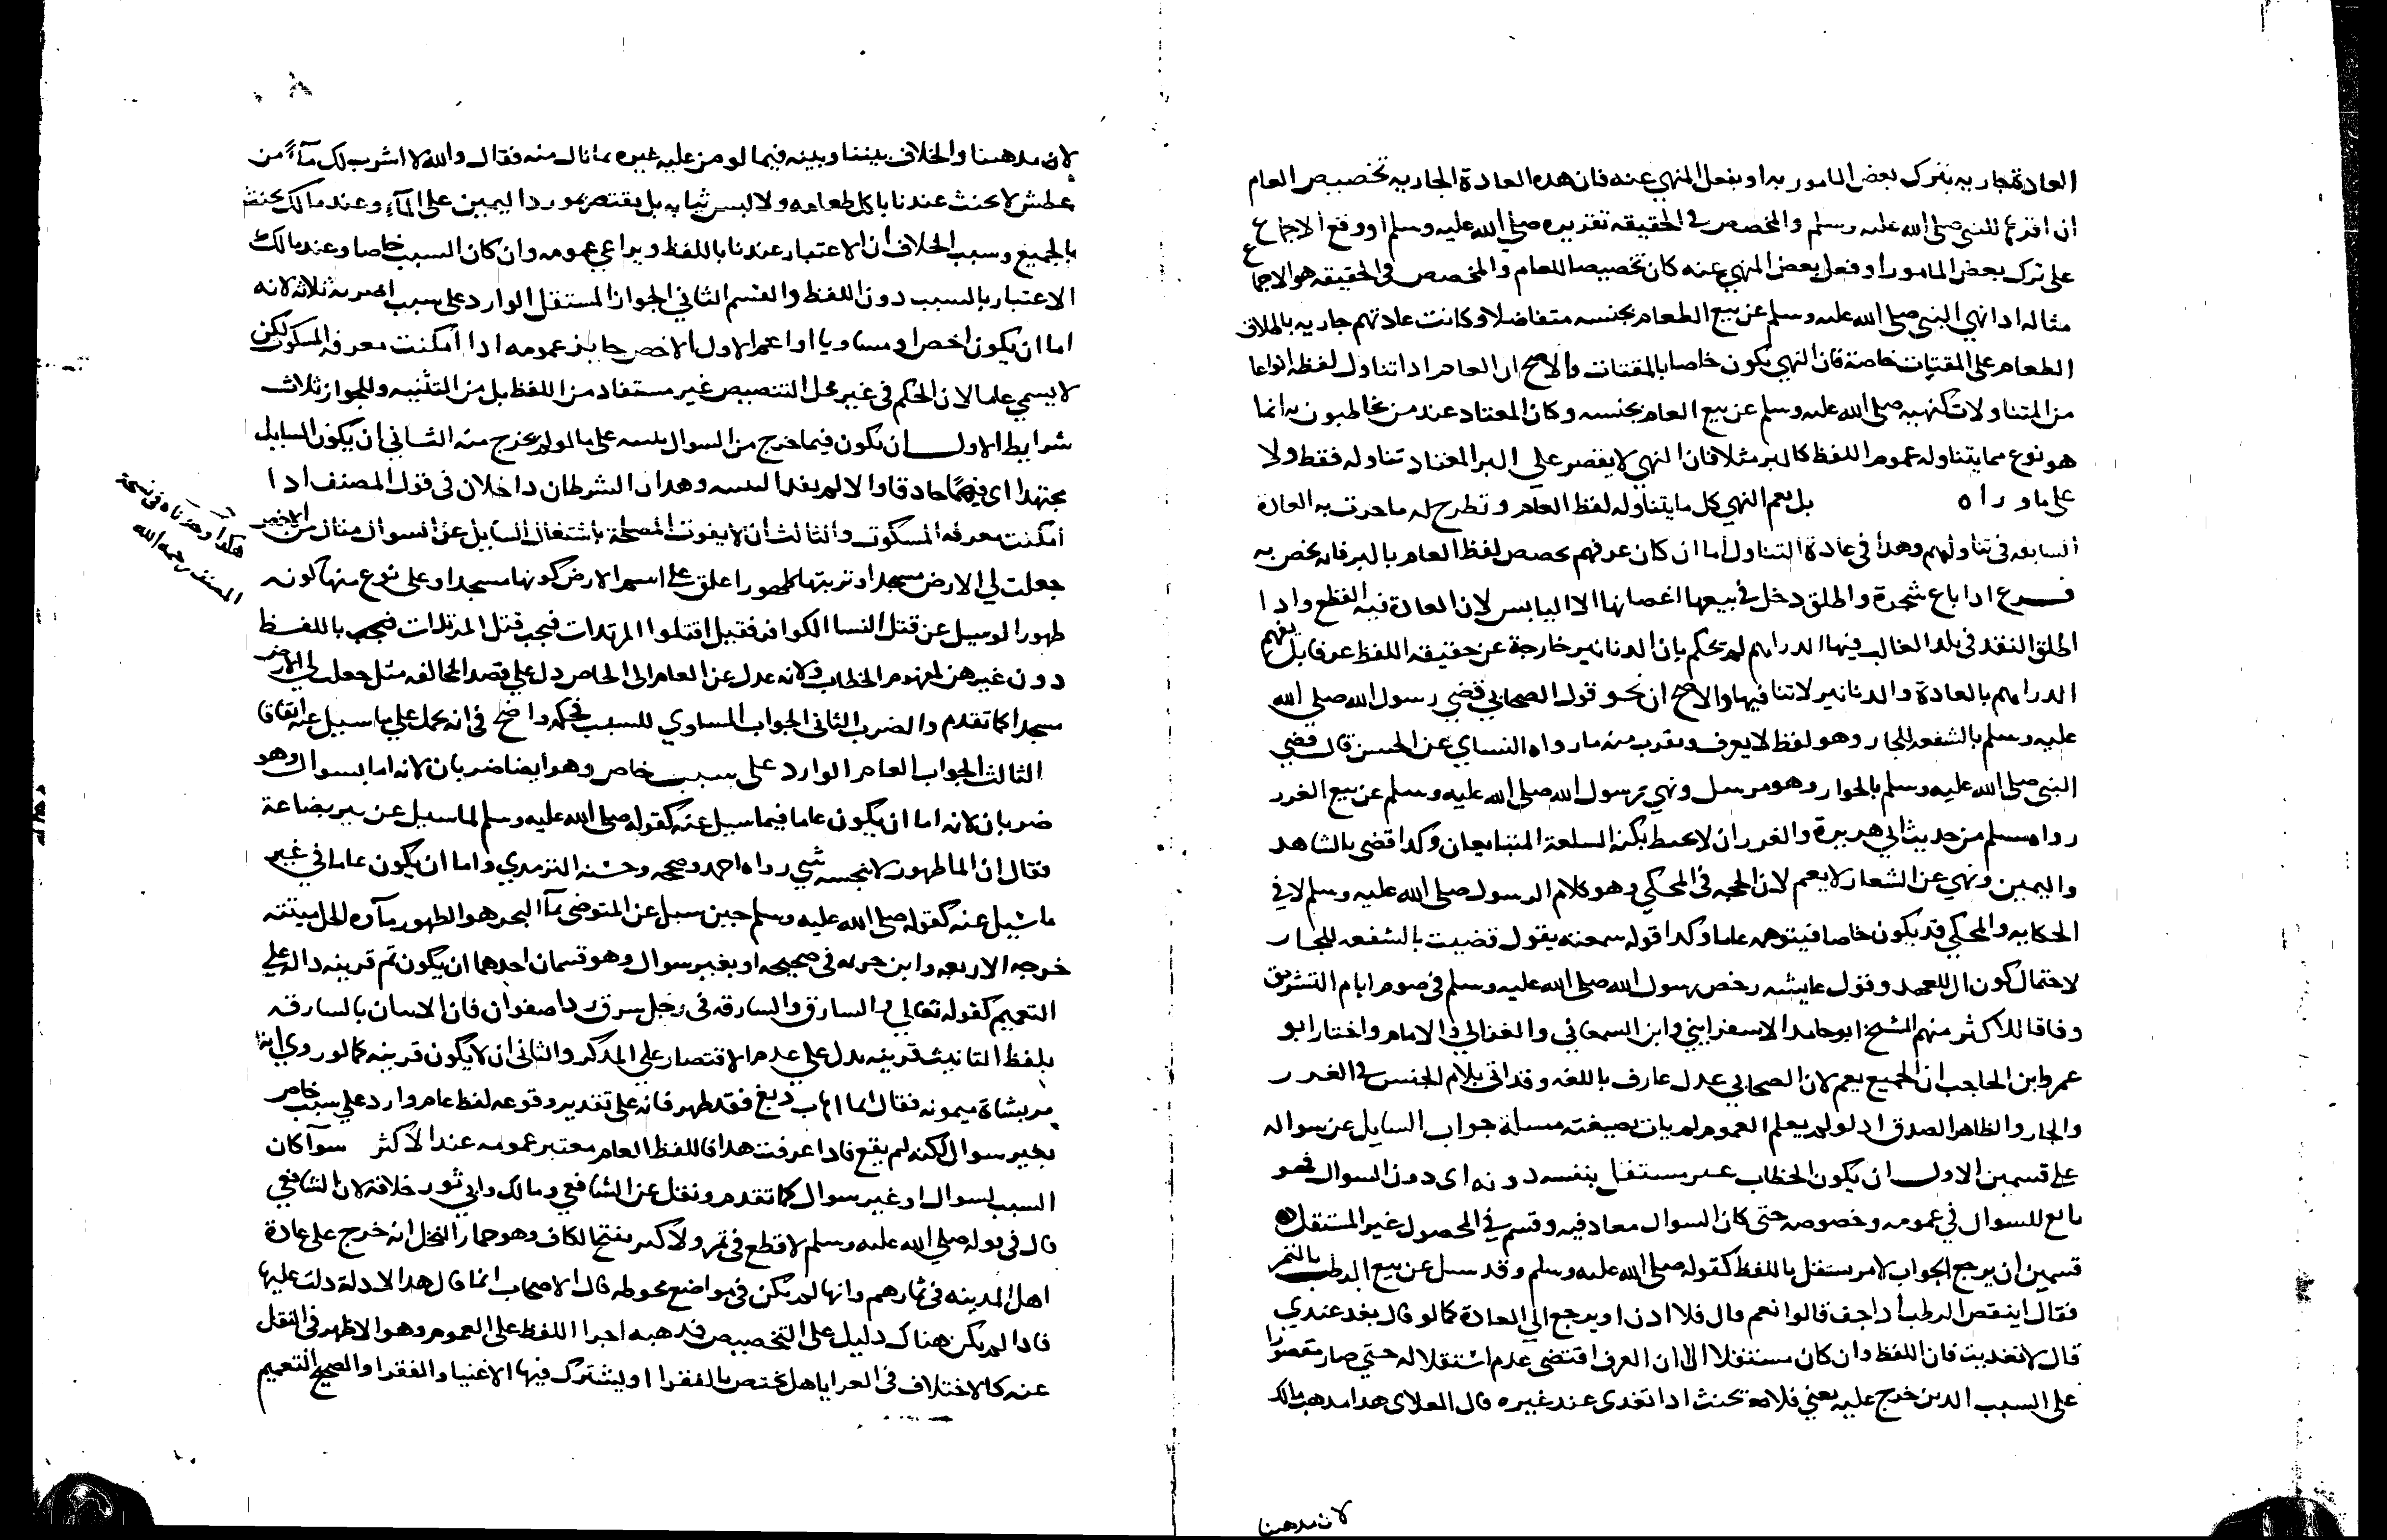 العادة جاريه بترك بعض المامور به او بفعل المنهي عنه فان هذه العادة الجاريه تخصيص العام
ان اقرها النبي صلى الله عليه وسلم والمخصص في الحقيقه تقريره صلى الله عليه وسلم او وقع الاجماع
على ترك بعض المامور او فعل بعض المنهي عنه كان تخصيصا للعام والمخصص في الحقيقه هو الاجماع
مثاله اذا نهي النبي صلى الله عليه وسلم عن بيع الطعام بجنسه متفاضلا وكانت عادتهم جاريه باطلاق
الطعام على المقتات خاصة فان النهي يكون خاصا بالمقتات والاصح ان العام اذا تناول لفظه انواعا
من المتناولات كنهيه صلى الله عليه وسلم عن بيع العام بجنسه وكان المعتاد عند من يخاطبون به انما
هو نوع مما يتناوله عموم اللفظ كالبر مثلا فان النهي لا يقصر على البر المعتاد تناوله فقط ولا
على ما وراه بل يعم النهي كل ما يتناوله لفظ العام وتطرح له ما جرت به العادة
السابقه في تناولهم وهذا في عادة التناول اما ان كان عرفهم يخصص لفظ العام بالبر فانه يخص به
فرع اذا باع شجرة واطلق دخل في بيعها اغصانها الا اليابس لان العادة فيه القطع واذا
اطلق النقد في بلد الغالب فيها الدراهم لم يحكم بان الدنانير خارجة عن حقيقه اللفظ عرفا بل يفهم
الدراهم بالعادة والدنانير لا تنافيها والاصح ان نحو قول الصحابي قضي رسول الله صلى الله
عليه وسلم بالشفعه للجار وهو لفظ لا يعرف ويقرب منه ما رواه النساي عن الحسن قال قضي
النبي صلى الله عليه وسلم بالجوار وهو مرسل ونهي رسول الله صلى الله عليه وسلم عن بيع الغرر
رواه مسلم من حديث ابي هريرة والغرر ان لا يحيط بكنه السلعة المتبايعان وكذا قضى بالشاهد
واليمين ونهي عن الشغار لا يعم لان الحجه في المحكي وهو كلام الرسول صلى الله عليه وسلم لا في
الحكايه والمحكي قد يكون خاصا فيتوهمه عاما وكذا قوله سمعته يقول قضيت بالشفعه للجار
لاحتمال كون ال للعهد وقول عايشه رخص رسول الله صلى الله عليه وسلم في صوم ايام التشريق
وفاقا للاكثر منهم الشيخ ابو حامد الاسفرايني وابن السمعاني والغزالي والامام واختار ابو
عمرو ابن الحاجب ان الجميع يعم لان الصحابي عدل عارف باللغه وقد اتى بلام الجنس في الغرر
والجار والظاهر الصدق اذ لو لم يعلم العموم لم يات بصيغته مسالة جواب السايل عن سواله
على قسمين الاول ان يكون الخطاب غير مستقل بنفسه دونه اي دون السوال فهو
تابع للسوال في عمومه وخصوصه حتى كان السوال معاد فيه وقسم في المحصول غير المستقل
قسمين ان يرجع الجواب لامر مستقل باللفظ كقوله صلى الله عليه وسلم وقد سيل عن بيع الرطب بالتمر
فقال اينقص الرطب اذا جف قالوا نعم قال فلا اذن او يرجع الى العادة كما لو قال تغد عندي
قال لا تغديت فان اللفظ وان كان مستقلا الا ان العرف اقتضى عدم استقلاله حتى صار مقصورا
على السبب الذي خرج عليه يعني فلا يحنث اذا تغدى عند غيره قال العلاي هذا مذهب مالك
لان مذهبنا
لان مذهبنا والخلاف بيننا وبينه فيما لو من عليه غيره بما نال منه فقال والله لا اشرب لك مآء من
عطش لا يحنث عندنا باكل طعامه ولا لبس ثيابه بل يقتصر بمورد اليمين على المآء وعند مالك يحنث
بالجميع وسبب الخلاف ان الاعتبار عندنا باللفظ ويراعي عمومه وان كان السبب خاصا وعند مالك
الاعتبار بالسبب دون اللفظ والقسم الثاني الجواب المستقل الوارد على سبب اضربه ثلاثه لانه
اما ان يكون اخص او مساويا او اعم الاول الاخص جايز عمومه اذا امكنت معرفه المسكوت لكن
لا يسمي عاما لان الحكم في غير محل التنصيص غير مستفاد من اللفظ بل من التنبيه وللجواز ثلاث
شرايط الاول ان يكون فيما خرج من السوال تنبيه على ما لم يخرج منه الثاني ان يكون السايل
مجتهدا اي فهما حاذقا والا لم يفد التنبيه وهذان الشرطان داخلان في قول المصنف اذا
امكنت معرفه المسكوت والثالث ان لا يفوت المصلحة باشتغال السايل عن السوال مثال من الاخص
جعلت لي الارض مسجدا وتربتها طهورا علق على اسم الارض كونها مسجدا وعلى نوع منها كونه
طهورا لو سيل عن قتل النسا الكوافر فقيل اقتلوا المرتدات فيجب قتل المرتدات فيجب باللفظ
دون غيرهن لمفهوم الخطاب ولانه عدل عن العام الى الخاص دل على قصد المخالفه مثل جعلت لي الارض
مسجدا كما تقدم والضرب الثاني الجواب المساوي للسبب فحكمه واضح في انه يحمل على ما سيل عنه اتفاقا
الثالث الجواب العام الوارد على سبب خاص وهو ايضا ضربان لانه اما بسوال وهو
ضربان لانه اما ان يكون عاما فيما سيل عنه كقوله صلى الله عليه وسلم لما سيل عن بير بضاعة
فقال ان الما طهور لا ينجسه شي رواه احمد وصححه وحسنه الترمذي واما ان يكون عاما في غير
ما سيل عنه كقوله صلى الله عليه وسلم حين سيل عن المتوضي بمآ البحر هو الطهور مآوه الحل ميتته
خرجه الاربعه وابن خزيمه في صحيحه او بغير سوال وهو قسمان احدهما ان يكون ثم قرينه داله على
التعميم كقوله تعالى والسارق والسارقه في رجل سرق ردا صفوان فان الاتيان بالسارقه
بلفظ التانيث قرينه تدل على عدم الاقتصار على المذكر والثاني ان لا يكون قرينه كما لو روي انه
مر بشاة ميمونه فقال ايما اهاب دبغ فقد طهر فانه على تقدير وقوعه لفظ عام وارد على سبب خاص
بغير سوال لكنه لم يقع فاذا عرفت هذا فاللفظ العام معتبر عمومه عند الاكثر سوآ كان
السبب لسوال او غير سوال كما تقدم ونقل عن الشافعي ومالك وابي ثور خلافه لان الشافعي
قال في قوله صلى الله عليه وسلم لا قطع في ثمر ولا كثر بفتح الكاف وهو جمار النخل انه خرج على عادة
اهل المدينه في ثمارهم وانها لم تكن في مواضع محوطه قال الاصحاب انما قال هذا لادلة دلت عليها
فاذا لم يكن هناك دليل على التخصيص فمذهبه اجرا اللفظ على العموم وهو الاظهر في النقل
عنه كالاختلاف في العرايا هل يختص بالفقرا او يشترك فيها الاغنيا والفقرا والصحيح التعميم
هكذا وجدناه في نسخة
المصنف رحمه الله